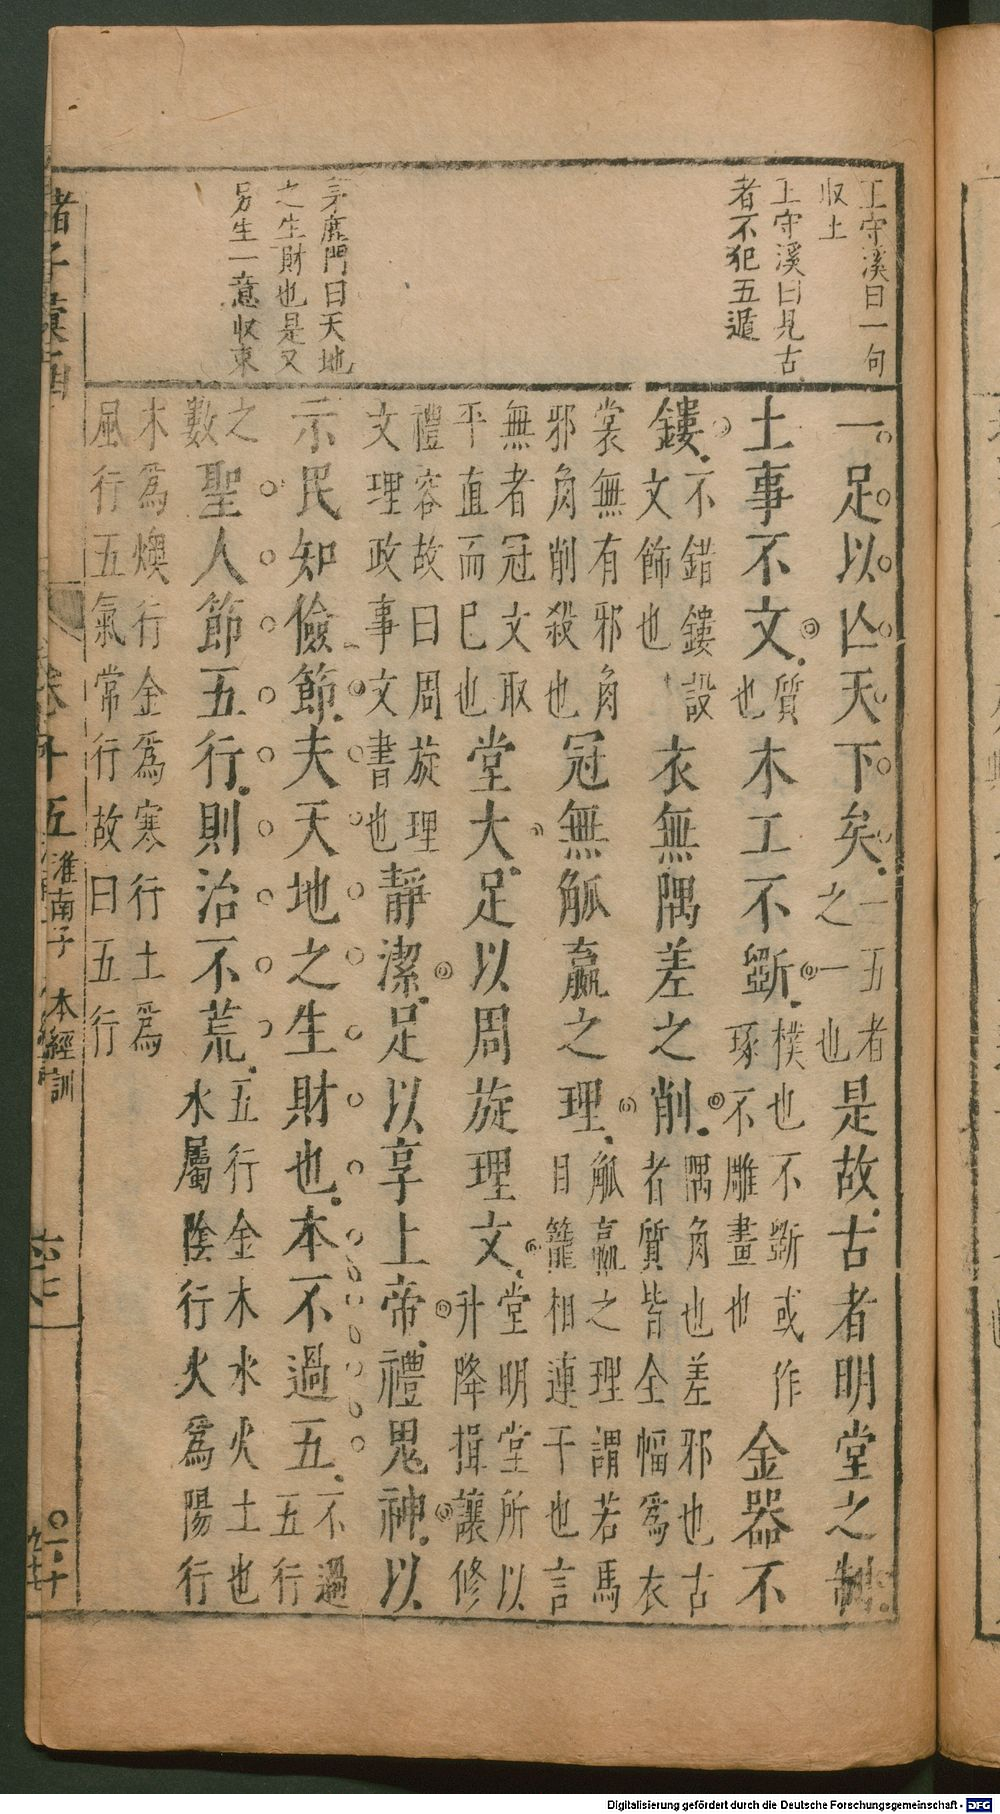 王守溪曰一句
収上
王守溪曰見古
者不犯五遁
茅鹿門曰天地
之生財也是又
另生一意収束
一足以亡天下矣一五者之一也是故古者明堂之制
土事不文質也木工不斵樸也不斵或作琢不雕畫也金器不
鏤不錯鏤設文飾也衣無隅差之削隅角也差邪也古者質皆全幅爲衣
裳無有邪角邪角削殺也冠無觚蠃之理觚蠃之理謂若馬目籠相連干也言
無者冠文取平直而巳也堂大足以周旋理文堂明堂所以升降揖讓修
禮容故曰周旋理文理政事文書也靜潔足以享上帝禮鬼神以
示民知儉節夫天地之生財也本不過五不過五行
之數聖人節五行則治不荒五行金木水火土也水屬陰行火爲陽行
木爲燠行金爲寒行土爲風行五氣常行故曰五行
諸子彙函 卷十五 淮南子 本經訓
Digitalisierung gefördert durch die Deutsche Forschungsgemeinschaft - DFG